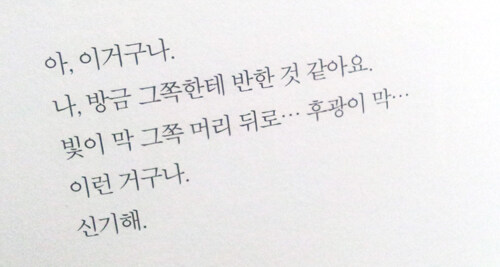 아, 이거구나.
나, 방금 그쪽한테 반한 것 같아요.
빛이 막 그쪽 머리 뒤로… 후광이 막…
이런 거구나.
신기해.